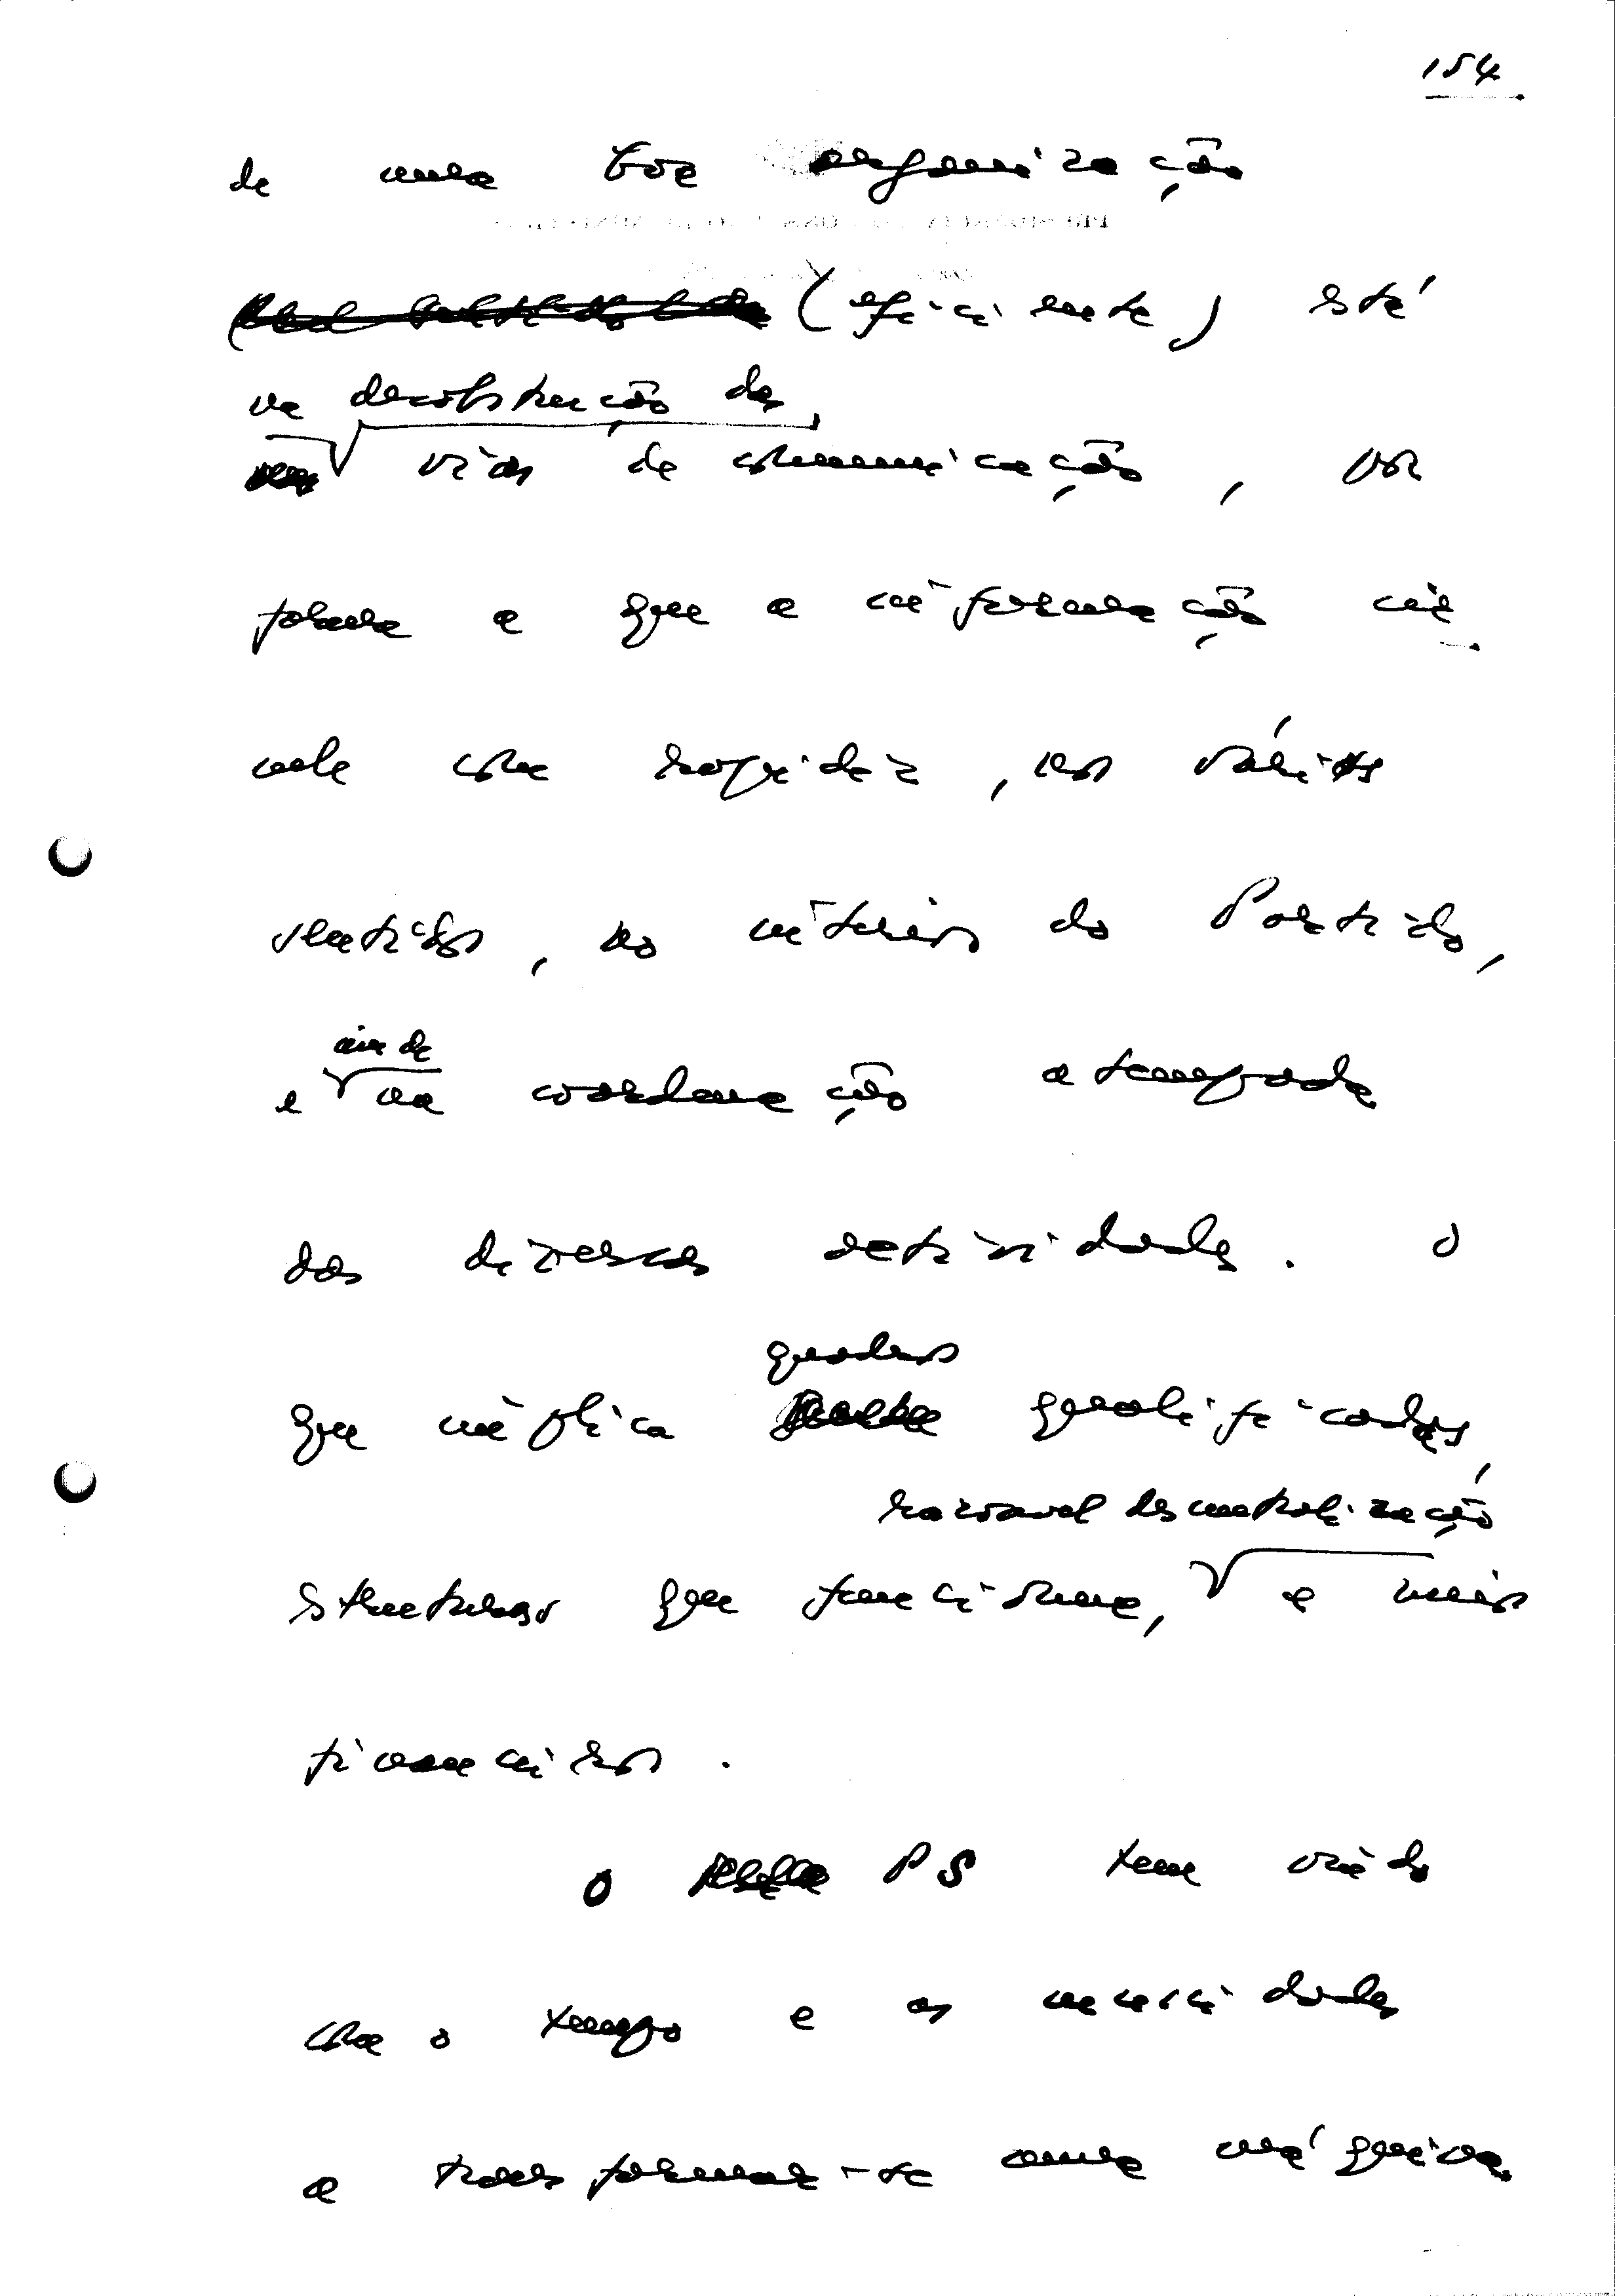 154
de uma boa organização
(eficiente) está
na desobstrução das
vias de comunicação, por
forma a que a informação cir
cule com rapidez, nos vários
sentidos, no interior do Partido,
ainda
e na coordenação atempada
das diversas actividades. O
quadros
que implica qualificados,
razoavel descentralização
estruturas que funcionem, e meios
financeiros.
O PS tem vindo
com o tempo e as necessidades
a transformar-se numa máquina